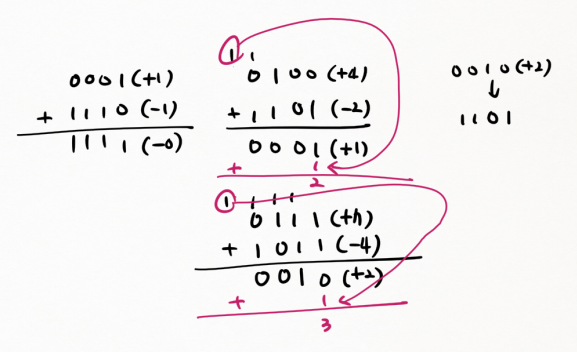 0001(+1)
+ 1110(-1)
1111(-0)
1 1
0100(+4)
+ 1101(-2)
0001(+1)
+ 1
2
0010(+2)
↓
1101
1 1 1 1
0111(+h)
+ 1011(-4)
0010(+2)
+ 1
3